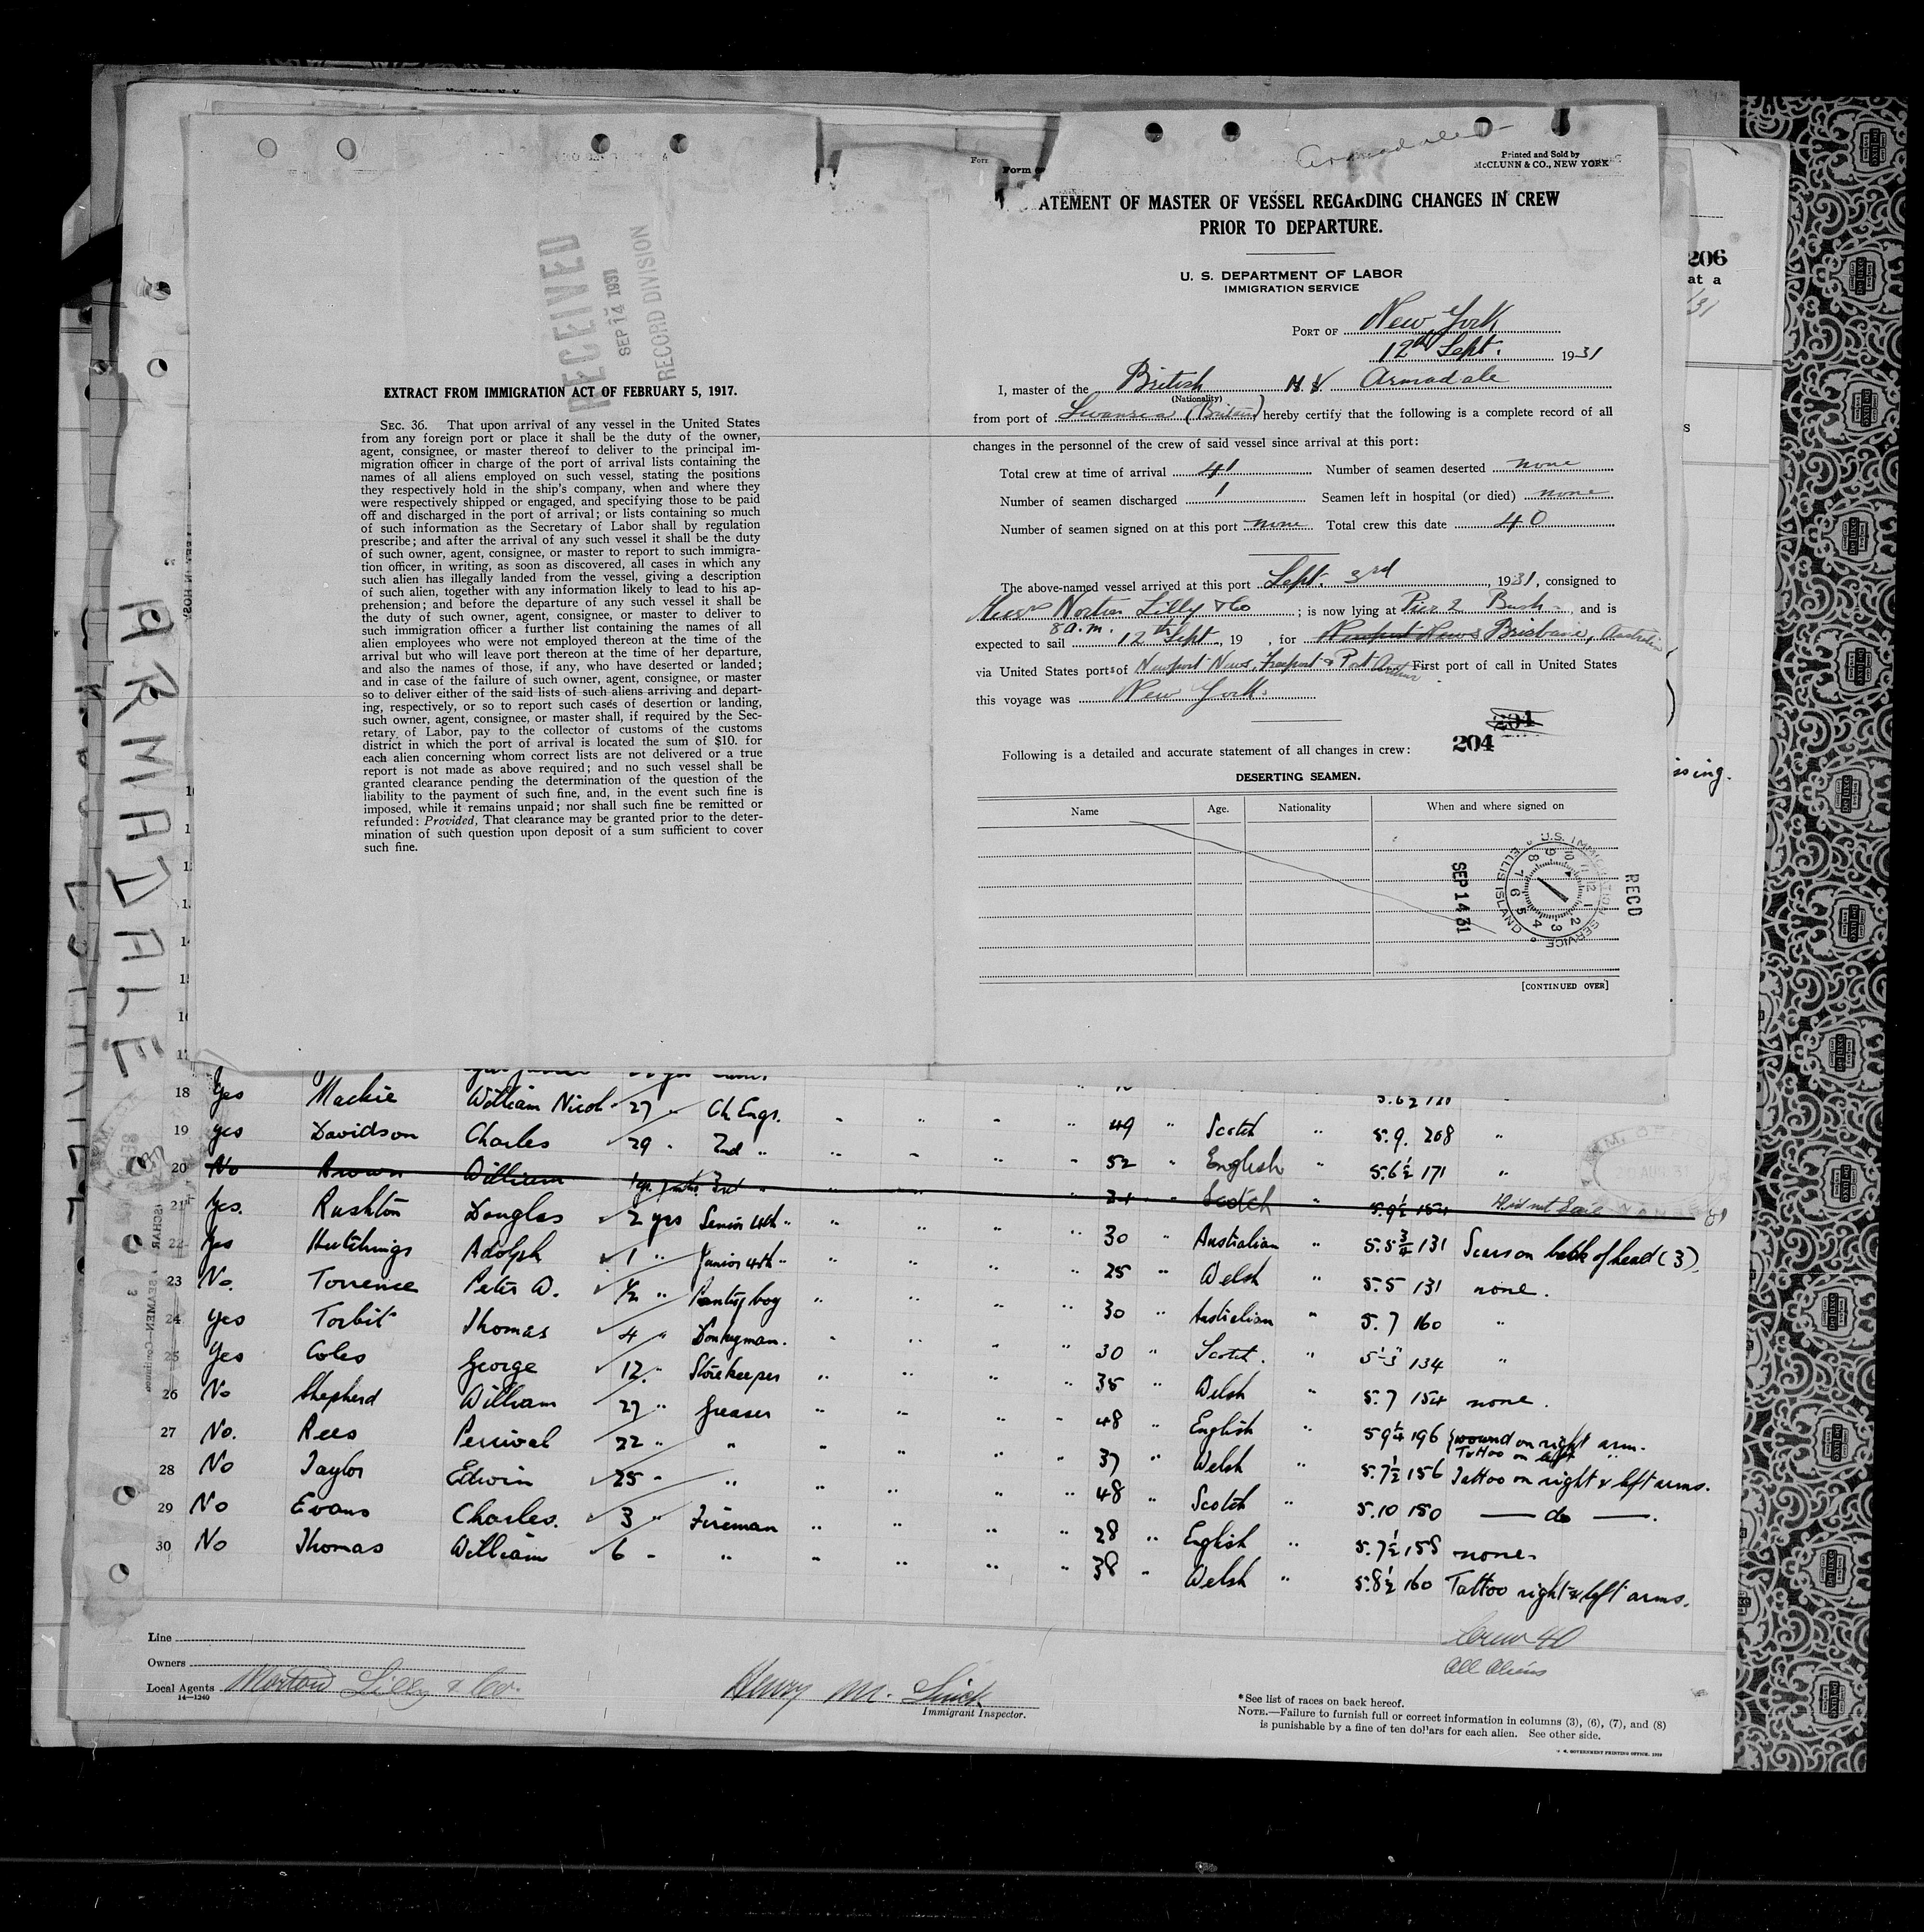 Armadale
Printed and Sold by
McCLUNN & CO., NEW YORK
Form
ATEMENT OF MASTER OF VESSEL REGARDING CHANGES IN CREW
PRIOR TO DEPARTURE.
U. S. DEPARTMENT OF LABOR
IMMIGRATION SERVICE
PORT OF New York
12th Sept. 1931
I, master of the British M.V. Armadale
(Nationality)
from port of Swansea (Britain) hereby certify that the following is a complete record of all
changes in the personnel of the crew of said vessel since arrival at this port:
Total crew at time of arrival 41 Number of seamen deserted none
Number of seamen discharged 1 Seamen left in hospital (or died) none
Number of seamen signed on at this port none Total crew this date 40
The above-named vessel arrived at this port Sept. 3rd, 1931, consigned to
Messrs Norton Lilly & Co; is now lying at Pier 2 Bush, and is
expected to sail 8 a.m. 12th Sept, 19 , for Newport News Brisbane, Australia
via United States ports of Newport News, Freeport & Port Arthur First port of call in United States
this voyage was New York.
204
204
Following is a detailed and accurate statement of all changes in crew:
DESERTING SEAMEN.
Name Age. Nationality When and where signed on
RECD
SEP 14 31
U.S. IMMIGRATION SERVICE
ELLIS ISLAND
[CONTINUED OVER]
RECEIVED
SEP 14 1931
RECORD DIVISION
EXTRACT FROM IMMIGRATION ACT OF FEBRUARY 5, 1917.
SEC. 36. That upon arrival of any vessel in the United States
from any foreign port or place it shall be the duty of the owner,
agent, consignee, or master thereof to deliver to the principal im-
migration officer in charge of the port of arrival lists containing the
names of all aliens employed on such vessel, stating the positions
they respectively hold in the ship's company, when and where they
were respectively shipped or engaged, and specifying those to be paid
off and discharged in the port of arrival; or lists containing so much
of such information as the Secretary of Labor shall by regulation
prescribe; and after the arrival of any such vessel it shall be the duty
of such owner, agent, consignee, or master to report to such immigra-
tion officer, in writing, as soon as discovered, all cases in which any
such alien has illegally landed from the vessel, giving a description
of such alien, together with any information likely to lead to his ap-
prehension; and before the departure of any such vessel it shall be
the duty of such owner, agent, consignee, or master to deliver to
such immigration officer a further list containing the names of all
alien employees who were not employed thereon at the time of the
arrival but who will leave port thereon at the time of her departure,
and also the names of those, if any, who have deserted or landed;
and in case of the failure of such owner, agent, consignee, or master
so to deliver either of the said lists of such aliens arriving and depart-
ing, respectively, or so to report such cases of desertion or landing,
such owner, agent, consignee, or master shall, if required by the Sec-
retary of Labor, pay to the collector of customs of the customs
district in which the port of arrival is located the sum of $10. for
each alien concerning whom correct lists are not delivered or a true
report is not made as above required; and no such vessel shall be
granted clearance pending the determination of the question of the
liability to the payment of such fine, and, in the event such fine is
imposed, while it remains unpaid; nor shall such fine be remitted or
refunded: Provided, That clearance may be granted prior to the deter-
mination of such question upon deposit of a sum sufficient to cover
such fine.
ARMADALE
206
at a
ssing.
18 Yes Mackie William Nicol 27 " Ch Engr. " " " " 49 " Scotch " 5.9. 208 "
19 yes Davidson Charles 29 " 2nd " " " " " 52 " English " 5.6½ 171 "
20 No Brown William 1 yr. 3rd " 21 " Scotch " 5.9½ 154 Did not Sail
21 Yes. Rushton Douglas 2 yrs Senior 4th " " " " " 30 " Australian " 5.5¾ 131 Scars on back of head (3).
22 Yes Hutchings Adolph 1 " Junior 4th " " " " " 25 " Welsh " 5.5 131 none.
23 No. Torrence Peter A. ½ " Pantry boy " " " " 30 " Australian " 5.7 160 "
24 Yes Torbit Thomas 4 " Donkeyman. " " " " 30 " Scotch. " 5'3" 134 "
25 Yes Coles George 12 " Storekeeper " " " " 35 " Welsh " 5.7 154 none.
26 No Shepherd William 27 " Greaser " " " " 48 " English " 5.9¼ 196 wound on right arm. Tattoo on left "
27 No. Rees Percival 22 " " " " " " 37 " Welsh " 5.7½ 156 Tattoo on right & left arms.
28 No Taylor Edwin 25 " " " " " " 48 " Scotch " 5.10 150 — do —.
29 No Evans Charles. 3 " Fireman " " " " 28 " English " 5.7½ 158 none.
30 No Thomas William 6 " " " " " " 38 " Welsh " 5.8½ 160 Tattoo right & left arms.
Crew 40
All Aliens
Line
Owners
Local Agents Norton Lilly & Co.
14—1240
Henry M.
Immigrant Inspector.
*See list of races on back hereof.
NOTE.—Failure to furnish full or correct information in columns (3), (6), (7), and (8)
is punishable by a fine of ten dollars for each alien. See other side.
GOVERNMENT PRINTING OFFICE.